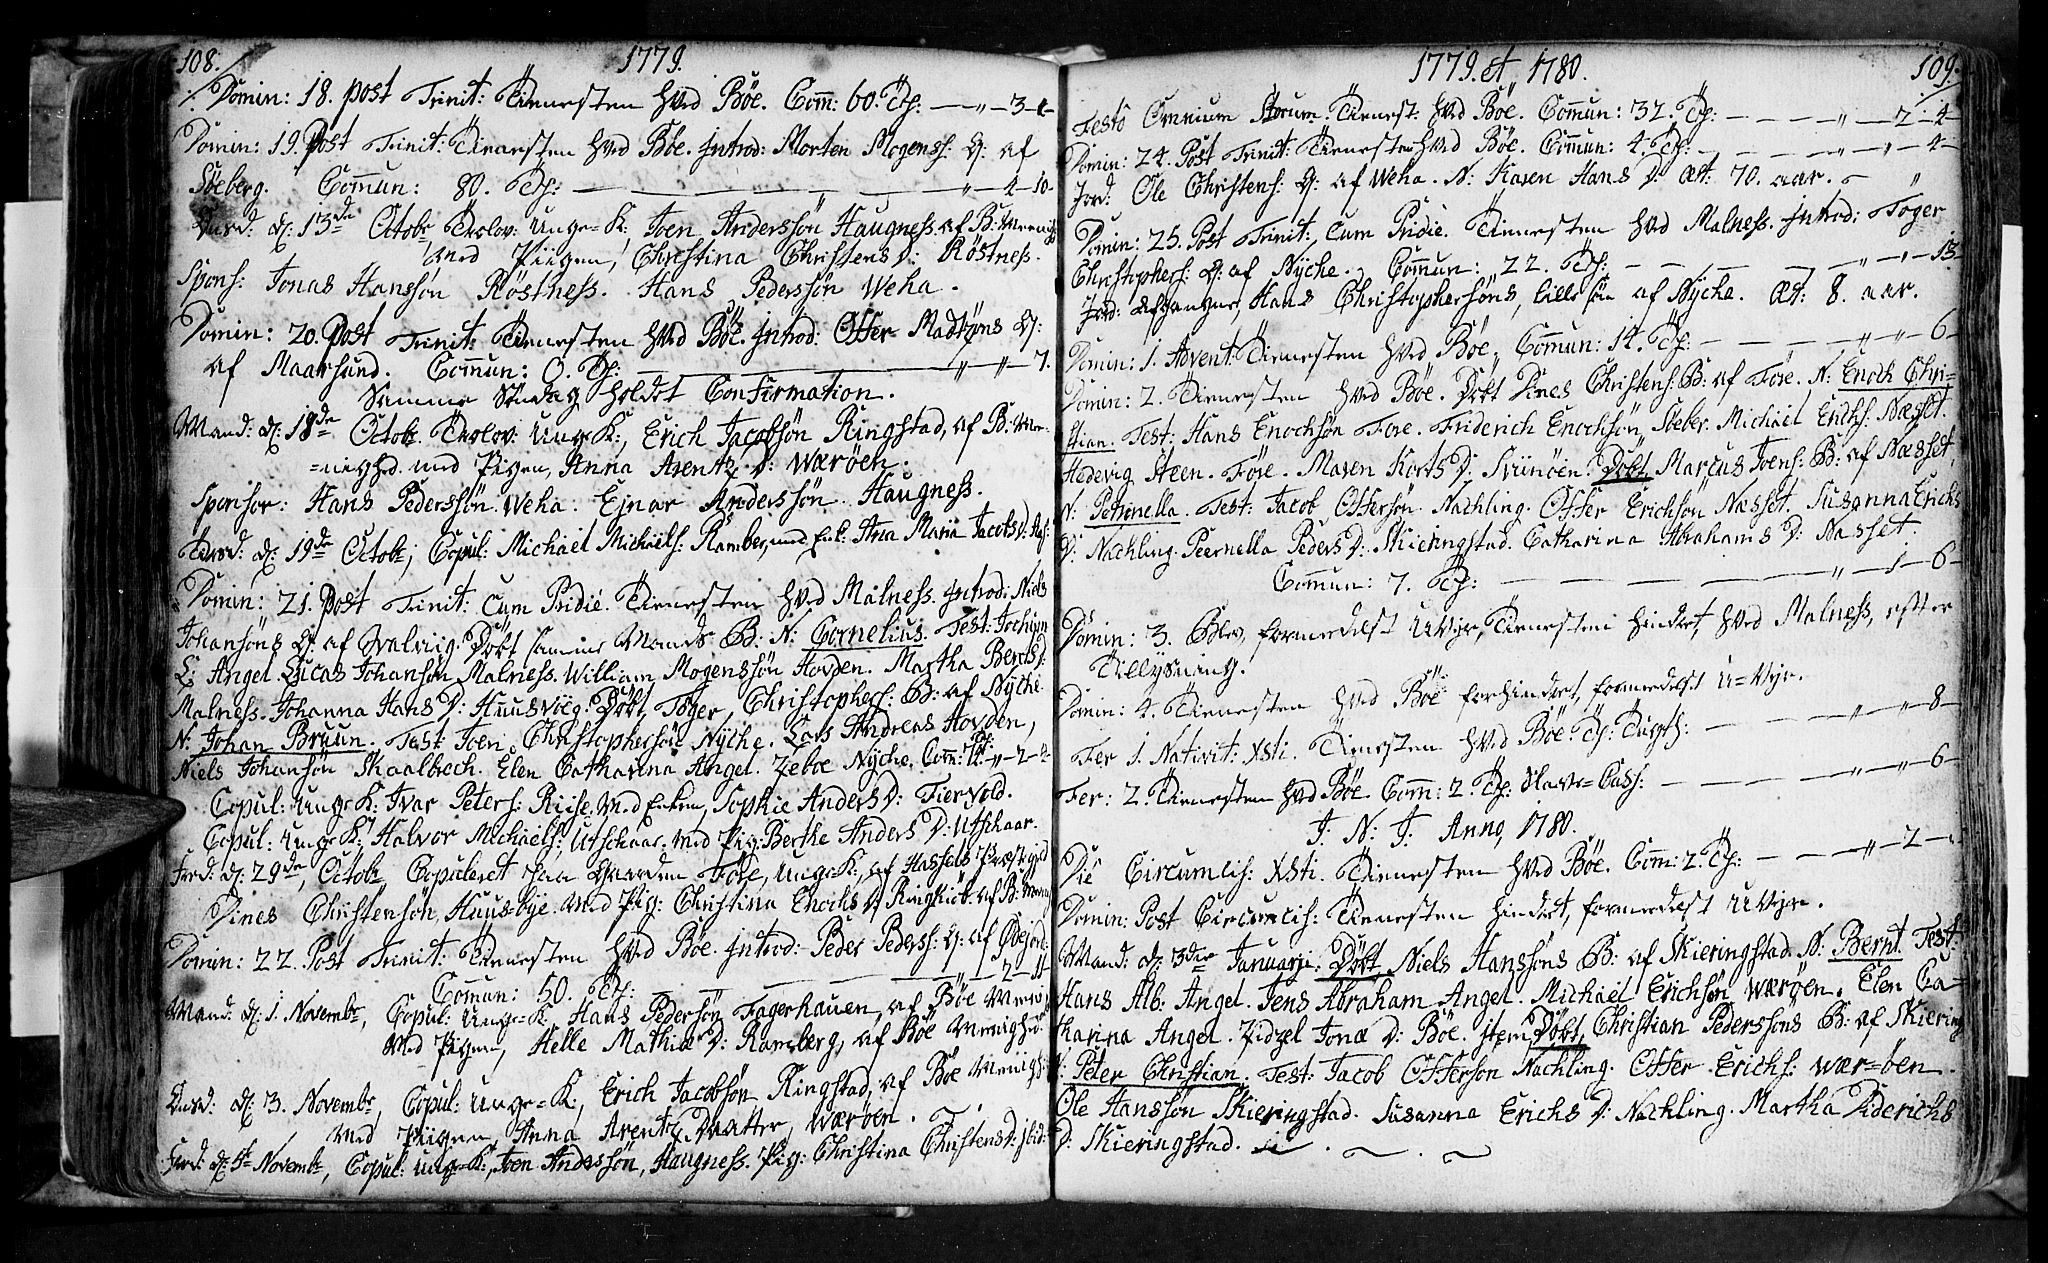 108.
1779.
Domin: 18. post Trinit: Tienesten hved Böe. Com̄: 60. Tp: — " — 3 —
Domin: 19. Post Trinit: Tienesten hved Böe. Introd: Morten Mogens: Q: af
Söeberg. Com̄un: 80. Tp: — " — 4 — 10
d: 13de Octobr Trolov: Unge-K: Joen Anderssön Haugness. af B: Menigh:
med Piigen, Christina Christens D: Röstness.
Spons: Jonas Hanssön Röstness. Hans Pederssön Weha.
Domin: 20. Post Trinit: Tienesten hved Böe. Introd: Offer Madtzöns Q:
af Maarsund. Com̄un: 0. Tp: — " — " — 7.
Samme Söndag holdet Confirmation.
Mand: d: 18de Octobr. Trolov: Unge K:, Erich Jacobsön Ringstad, af B: Me-
=nighed. med Pigen, Anna Arentz D: Wæröen.
Sponsor: Hans Pederssön Weha. Ejnar Anderssön Haugness.
Tirsd: d: 19de Octobr, Copul: Michael Michaels: Ramber, med Enk: Ana Maria Jacobs D:
Domin: 21. Post Trinit: Cum Pridie. Tienesten hved Malness. Introd: Niels
Johansöns Q: af Qvalviig. Döbt samme Mands B: N: Cornelius. Test: Jochum
L: Angel. Lucas Johansön Malness. William Mogenssön Hovden. Martha Berets D:
Malness. Johanna Hans D: Huusviig. Döbt, Töger Christophers: B: af Nyche.
N: Johan Bruun. Test: Joen Christophersön Nyche. Lars Andreas Hovden,
Niels Johansön Skaalbrech. Elen Catharina Angel. Zeboe Nyche. Com̄: 12. Tp: " — 2 — 4
Copul: Unge K: Ivar Peters: Riise, med Enken, Sophie Anders D: Fiervold.
Copul: Unge K: Halvor Michaels: Utschaar. med Pig: Berthe Anders D: Utschaar.
Fred: d: 29de, Octobr Copuleret paa Gaarden Före, Unge-K:, af Hassels Præstegield
Dines Christensön, Huus-bye. med Pig: Christina Enochs D: Ringkiöb. af B: Menig
Domin: 22. Post Trinit: Tienesten hved Böe. Introd: Peder Peders: Q: af
Com̄un: 50. Tp: — " — 2 — 11
Mand: d: 1. Novembr, Copul: Unge-K: Hans Pedersön Fagerhauen, af Böe Menigh
med Pigen, Helle Mathiæ D: Ramberg, af Böe Menighed
Onsd: d: 3. Novembr, Copul: Unge-K:, Erich Jacobsön Ringstad, af Böe Menigh:
med Piigen, Anna Arentz Daatter, Wæröen.
d: 5te Novembr, Copul: Unge-K:, Joen Anderssön, Haugness. Pig: Christina Christens D: ibid:
1779. et 1780.
109.
Festo Omnium Storum. Tienest: hved Böe. Com̄un: 32. Tp: — " — 2 — 4
Domin: 24. Post Trinit: Tienesten hved Böe. Com̄un: 4. Tp: — " — " — 4
Jord: Ole Christens: Q: af Weha. N: Karen Hans D: Æt: 70. aar. — "
Domin: 25. Post Trinit: Cum Pridie. Tienesten hved Malness. Introd: Töger
Christophers: Q: af Nyche. Com̄un: 22. Tp: — " — 1 — 13
Jord: Hans Christophersöns, lille sön af Nyche. Æt: 8. aar.
Domin: 1. Advent: Tienesten hved Böe. Com̄un: 14. Tp: — " — " — 6
Domin: 2. Tienesten hved Böe. Döbt Dines Christens: B: af Före. N: Enoch Chri=
stian. Test: Hans Enochsön Fore. Friderich Enochsön, Michael Erichs: Næsset.
Hedevig Steen. Före. Maren Korts D: Sviinöen. Döbt Marcus Joens: B: af Næsset,
N: Petronella. Test: Jacob Offersön Nachling. Offer Erichsön Næsset. Susanna Erichs
D: Nachling. Peernella Peders D: Skieringstad. Catharina Abrahams D: Næsset.
Com̄un: 7. Tp: — " — 1 — 6
Domin: 3. Blev, formedelst Uveir, Tienesten hindret, hved Malness, efter
Tillysning.
Domin: 4. Tienesten hved Böe forhindret, formedelst U=Vejr.
Fer 1. Nativit: Xsti. Tienesten hved Böe. Tp: — " — " — 8
Fer: 2. Tienesten hved Böe. Com̄: 2. Tp: Slave=Cass: — " — " — 6
J. N. J. Anno, 1780.
Die Circumcis: Xsti. Tienesten hved Böe. Com̄: 2. Tp: — " — 2 —
Domin: Post Circumcis: Tienesten hindret, formedelst Uvejr.
Mand: d: 3die Januarji. Döbt Niels Hanssöns B: af Skieringstad. N: Bernt. Test:
Hans Alb: Angel. Jens Abraham Angel. Michael Erichsön Wæröen. Elen Ca-
tharina Angel. Zidzel Jonæ D: Böe. item Döbt, Christian Pederssons B: af Skiering
N: Peter Christian. Test: Jacob Offerson Nachling. Offer Erichs: Wær=öen.
Ole Hanssön Skieringstad. Susanna Erichs D: Nachling. Martha Diderichs
D: Skieringstad.